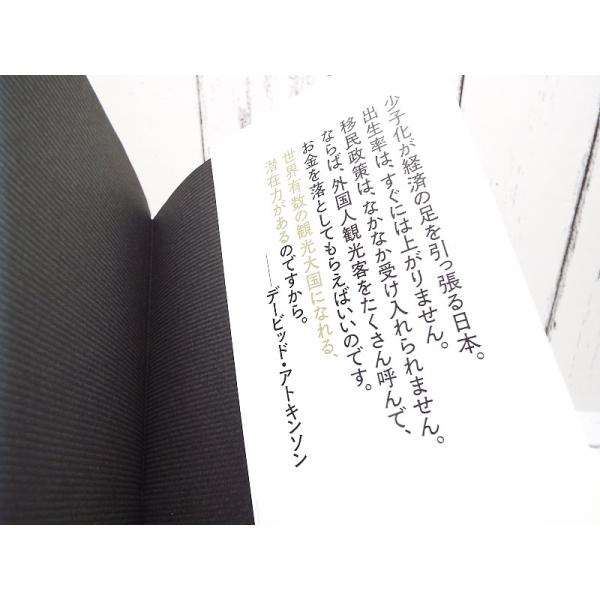 少子化が経済の足を引っ張る日本。
出生率は、すぐには上がりません。
移民政策は、なかなか受け入れられません。
ならば、外国人観光客をたくさん呼んで、
お金を落としてもらえばいいのです。
世界有数の観光大国になれる、
潜在力があるのですから。
――デービッド・アトキンソン